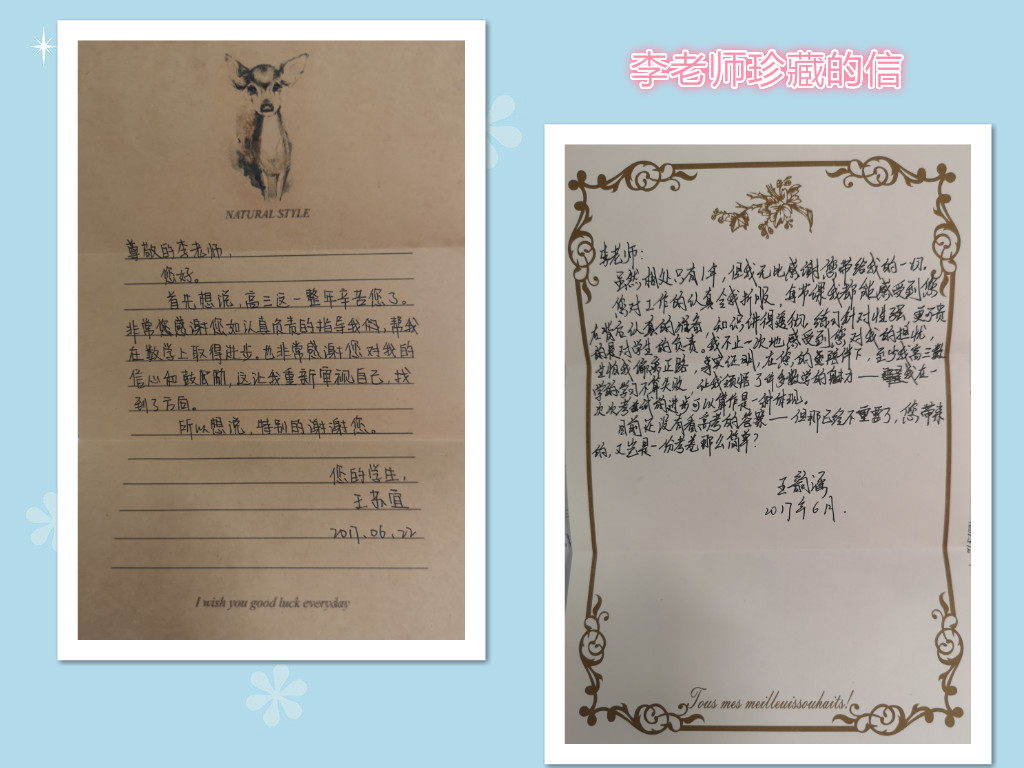 李老师珍藏的信
NATURAL STYLE
尊敬的李老师,
您好。
首先想说,高三这一整年辛苦您了。
非常感谢您如认真负责的指导我们,帮我
在数学上取得进步。也非常感谢您对我的
信心和鼓励,这让我重新审视自己,找
到了方向。
所以想说,特别的谢谢您。
您的学生,
王苏宜
2017.06.22
I wish you good luck everyday
李老师:
虽然相处只有1年,但我无比感谢您带给我的一切。
您对工作的认真令我折服,每节课我都能感受到您
在背后认真的准备,知识讲得透彻,练习针对性强,更可贵
的是对学生的负责。我不止一次地感受到您对我的担忧,
生怕我偏离正路,事实证明,在您的照料下,至少我高三数
学的学习不算失败,让我领悟了许多数学的魅力——我在一
次次考试的进步可以算作是一种体现。
目前还没有看高考的答案——但那已经不重要了,您带来
的,又岂是一份考卷那么简单?
王韵涵
2017年6月.
Tous mes meilleuissouhaits!